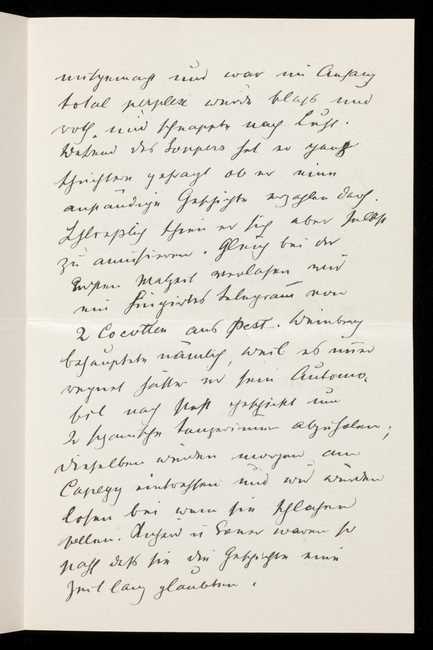 mitgemacht und war im Anfang
total perplex wurde blass und
roth und schnappte nach Luft.
Während des Soupers hat er ganz
schüchtern gefragt ob er eine
anständige Geschichte erzählen darf.
Schliesslich schien er sich aber selbst
zu amüsieren. Gleich bei der
ersten Malzeit verlasen wir
ein fingirtes Telegram von
2 Cocotten aus Pest. Weinberg
behauptete nämlich, weil es immer
regnet hätte er sein Automo-
bil nach Pest geschickt um
2 spanische Tänzerinnen abzuholen;
dieselben werden morgen am
eintreffen und wir würden
losen bei wem sie schlafen
sollen. u waren so
paff dass sie die Geschichte eine
Zeit lang glaubten.